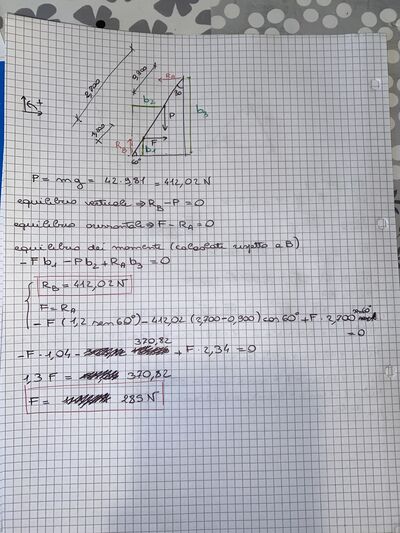 2,700
0,900
1,200
+
RA
60°
b2
P
b3
F
RB
b1
60°
P = mg = 42·9,81 = 412,02 N
equilibrio verticale ⇒ RB - P = 0
equilibrio orizzontale ⇒ F - RA = 0
equilibrio dei momenti (calcolate rispetto a B)
- F b1 - P b2 + RA b3 = 0
RB = 412,02 N
F = RA
- F (1,2 sen60°) - 412,02 (2,700 - 0,900) cos 60° + F · 2,700 sen60° = 0
- F · 1,04 - 370,82 + F · 2,34 = 0
1,3 F = 370,82
F = 285 N